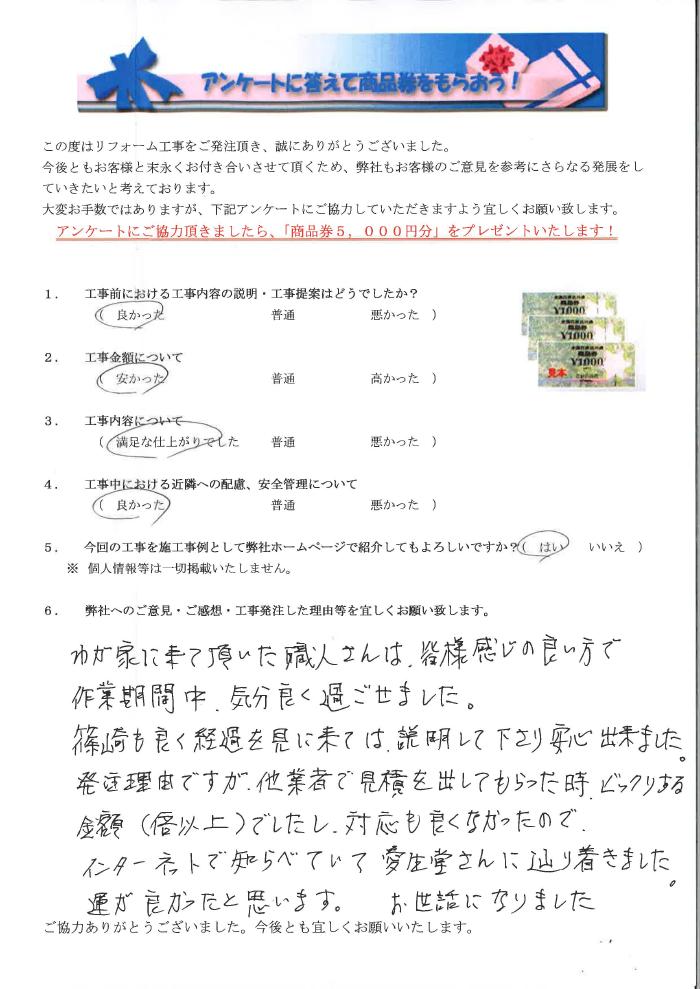 アンケートに答えて商品券をもらおう！
この度はリフォーム工事をご発注頂き、誠にありがとうございました。
今後ともお客様と末永くお付き合いさせて頂くため、弊社もお客様のご意見を参考にさらなる発展をし
ていきたいと考えております。
大変お手数ではありますが、下記アンケートにご協力していただきますよう宜しくお願い致します。
アンケートにご協力頂きましたら、「商品券５，０００円分」をプレゼントいたします！
１． 工事前における工事内容の説明・工事提案はどうでしたか？
（ 良かった 普通 悪かった ）
商品券
¥1,000
商品券
¥1,000
商品券
¥1,000
見本
２． 工事金額について
（ 安かった 普通 高かった ）
３． 工事内容について
（ 満足な仕上がりでした 普通 悪かった ）
４． 工事中における近隣への配慮、安全管理について
（ 良かった 普通 悪かった ）
５． 今回の工事を施工事例として弊社ホームページで紹介してもよろしいですか？（ はい いいえ ）
※ 個人情報等は一切掲載いたしません。
６． 弊社へのご意見・ご感想・工事発注した理由等を宜しくお願い致します。
わが家に来て頂いた職人さんは、皆様感じの良い方で
作業期間中、気分良く過ごせました。
篠崎も良く経過を見に来ては、説明して下さり安心出来ました。
発注理由ですが、他業者で見積を出してもらった時、ビックリする
金額（倍以上）でしたし、対応も良くなかったので、
インターネットで知らべていて 愛生堂さんに辿り着きました。
運が良かったと思います。 お世話になりました
ご協力ありがとうございました。今後とも宜しくお願いいたします。